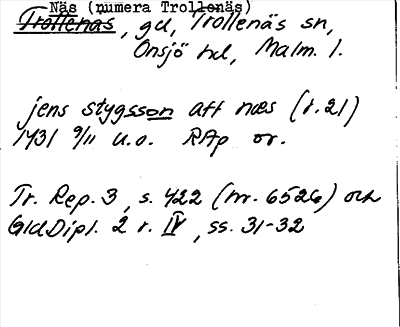 Näs (numera Trollenäs)
Trollenäs, gd, Trollenäs sn,
Onsjö hd, Malm. l.
jens stygsson aff næs (r. 21)
1431 9/11 u.o. RAp or.
Tr. Rep. 3, s. 422 (nr. 6526) och
GldDipl. 2 r. IV, ss. 31-32